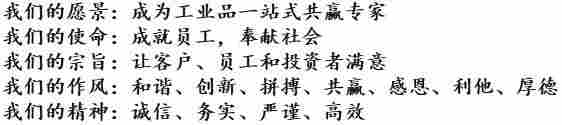 我们的愿景：成为工业品一站式共赢专家
我们的使命：成就员工，奉献社会
我们的宗旨：让客户、员工和投资者满意
我们的作风：和谐、创新、拼搏、共赢、感恩、利他、厚德
我们的精神：诚信、务实、严谨、高效